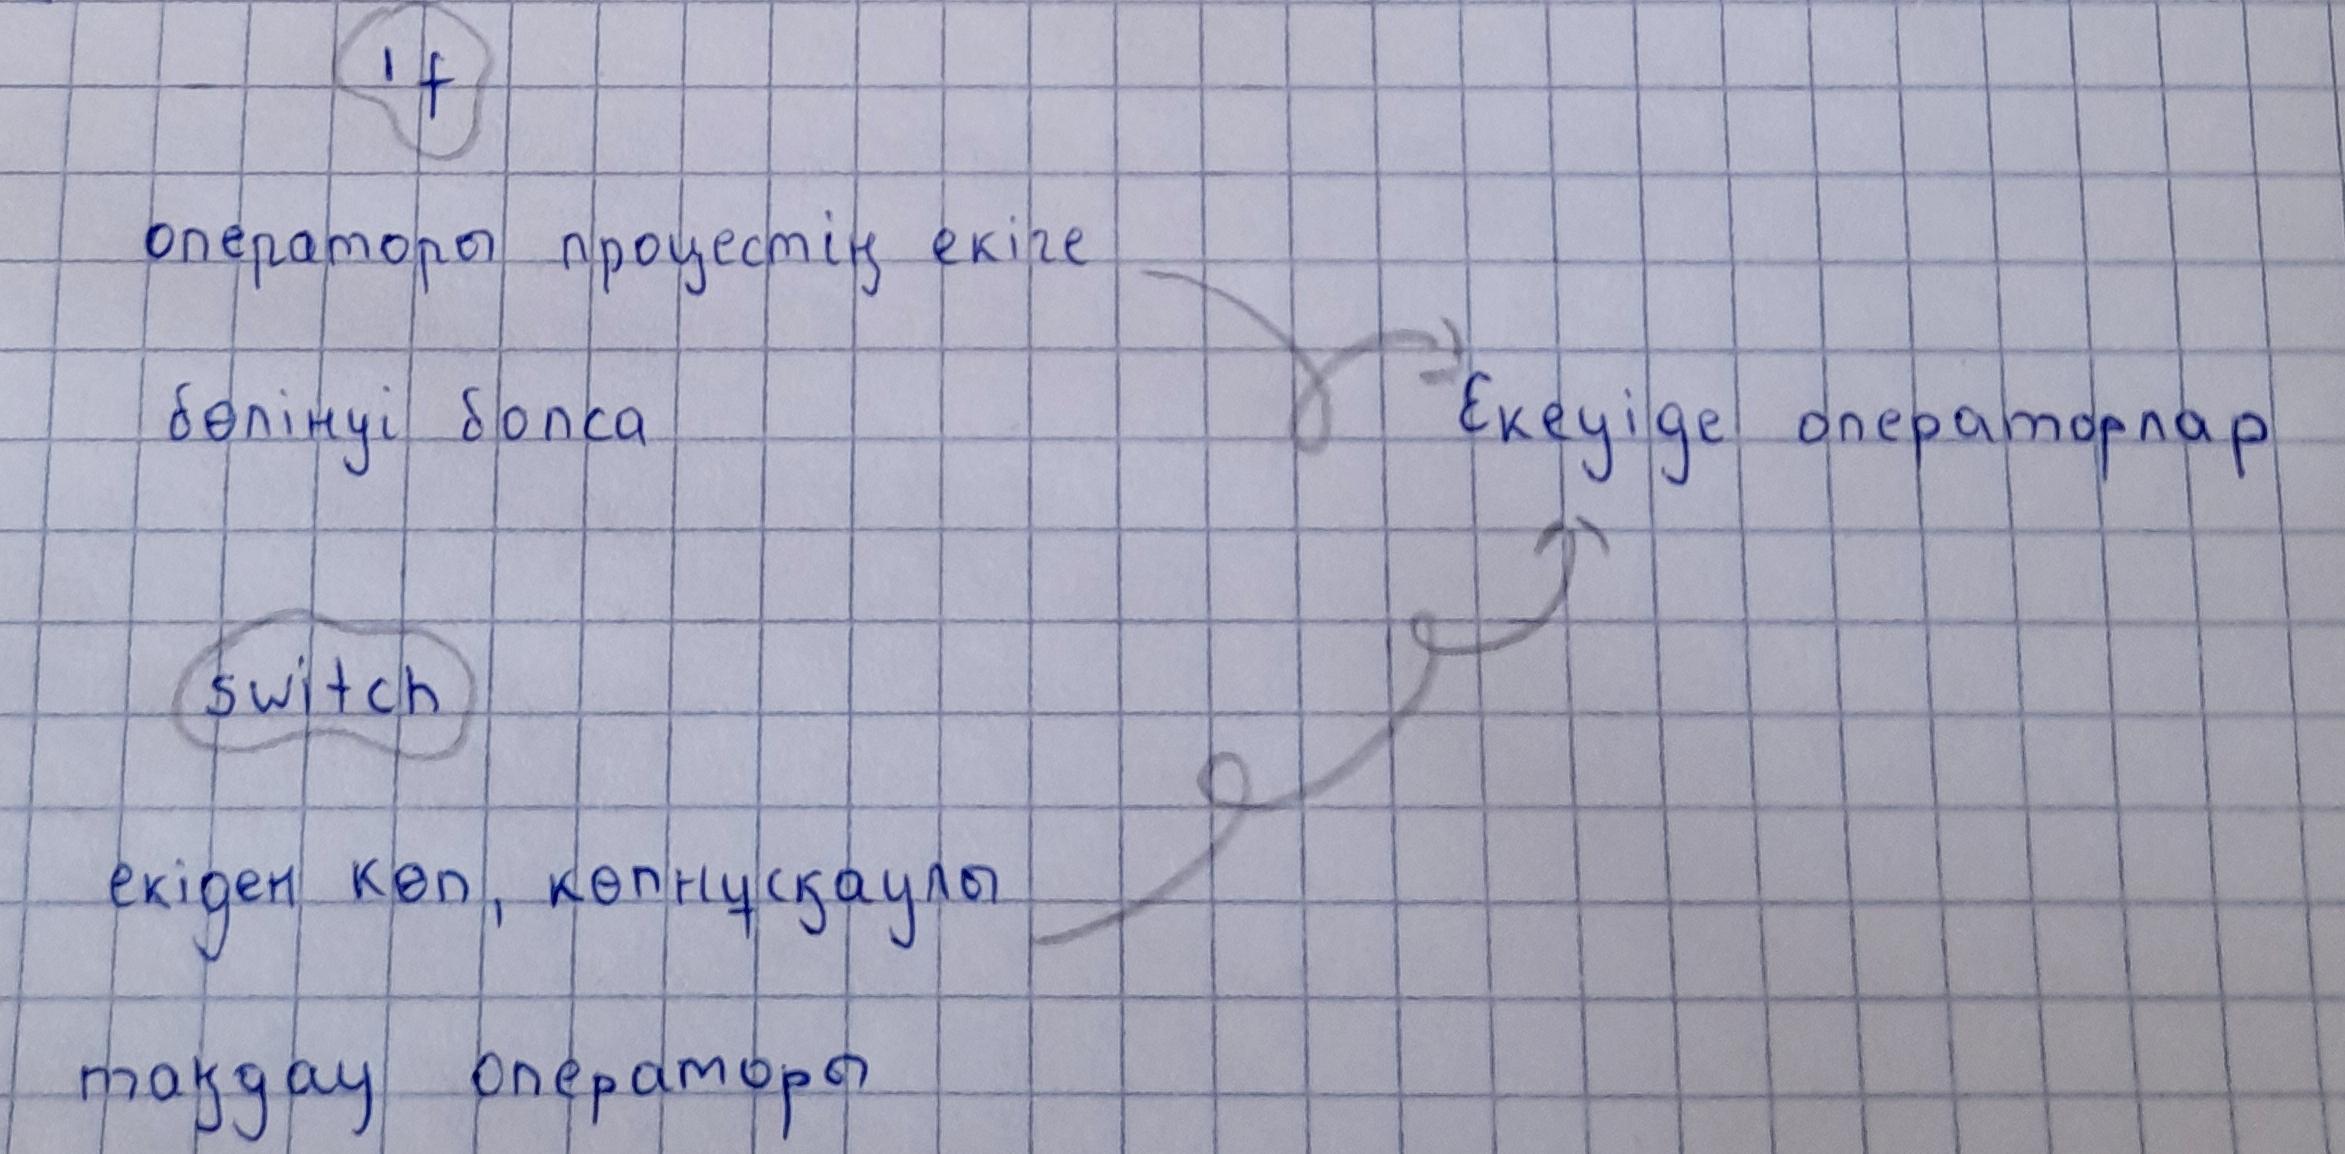 if
операторы процестің екіге
бөлінуі болса
Екеуіде операторлар
switch
екіден көп, көпнұсқаулы
таңдау операторы